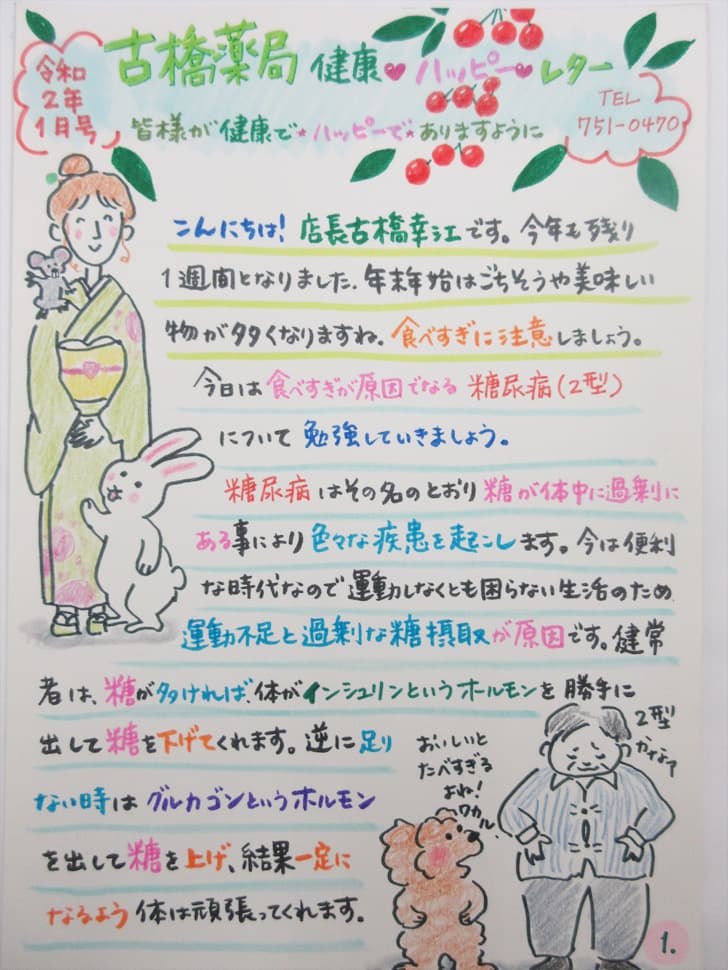 令和
2年
1月号
古橋薬局 健康♥ハッピー♥レター
TEL
751-0470
皆様が健康で★ハッピーで★ありますように
こんにちは! 店長古橋幸江です。今年も残り
1週間となりました。年末年始はごちそうや美味しい
物が多くなりますね。食べすぎに注意しましょう。
今日は食べすぎが原因でなる 糖尿病(2型)
について 勉強していきましょう。
糖尿病はその名のとおり糖が体中に過剰に
ある事により色々な疾患を起こします。今は便利
な時代なので運動しなくとも困らない生活のため
運動不足と過剰な糖摂取が原因です。健常
者は、糖が多ければ、体がインシュリンというホルモンを勝手に
出して糖を下げてくれます。逆に足り
ない時はグルカゴンというホルモン
を出して糖を上げ、結果一定に
なるよう体は頑張ってくれます。
おいしいと
たべすぎる
よね!
ワカル
2型
かなぁ
1.